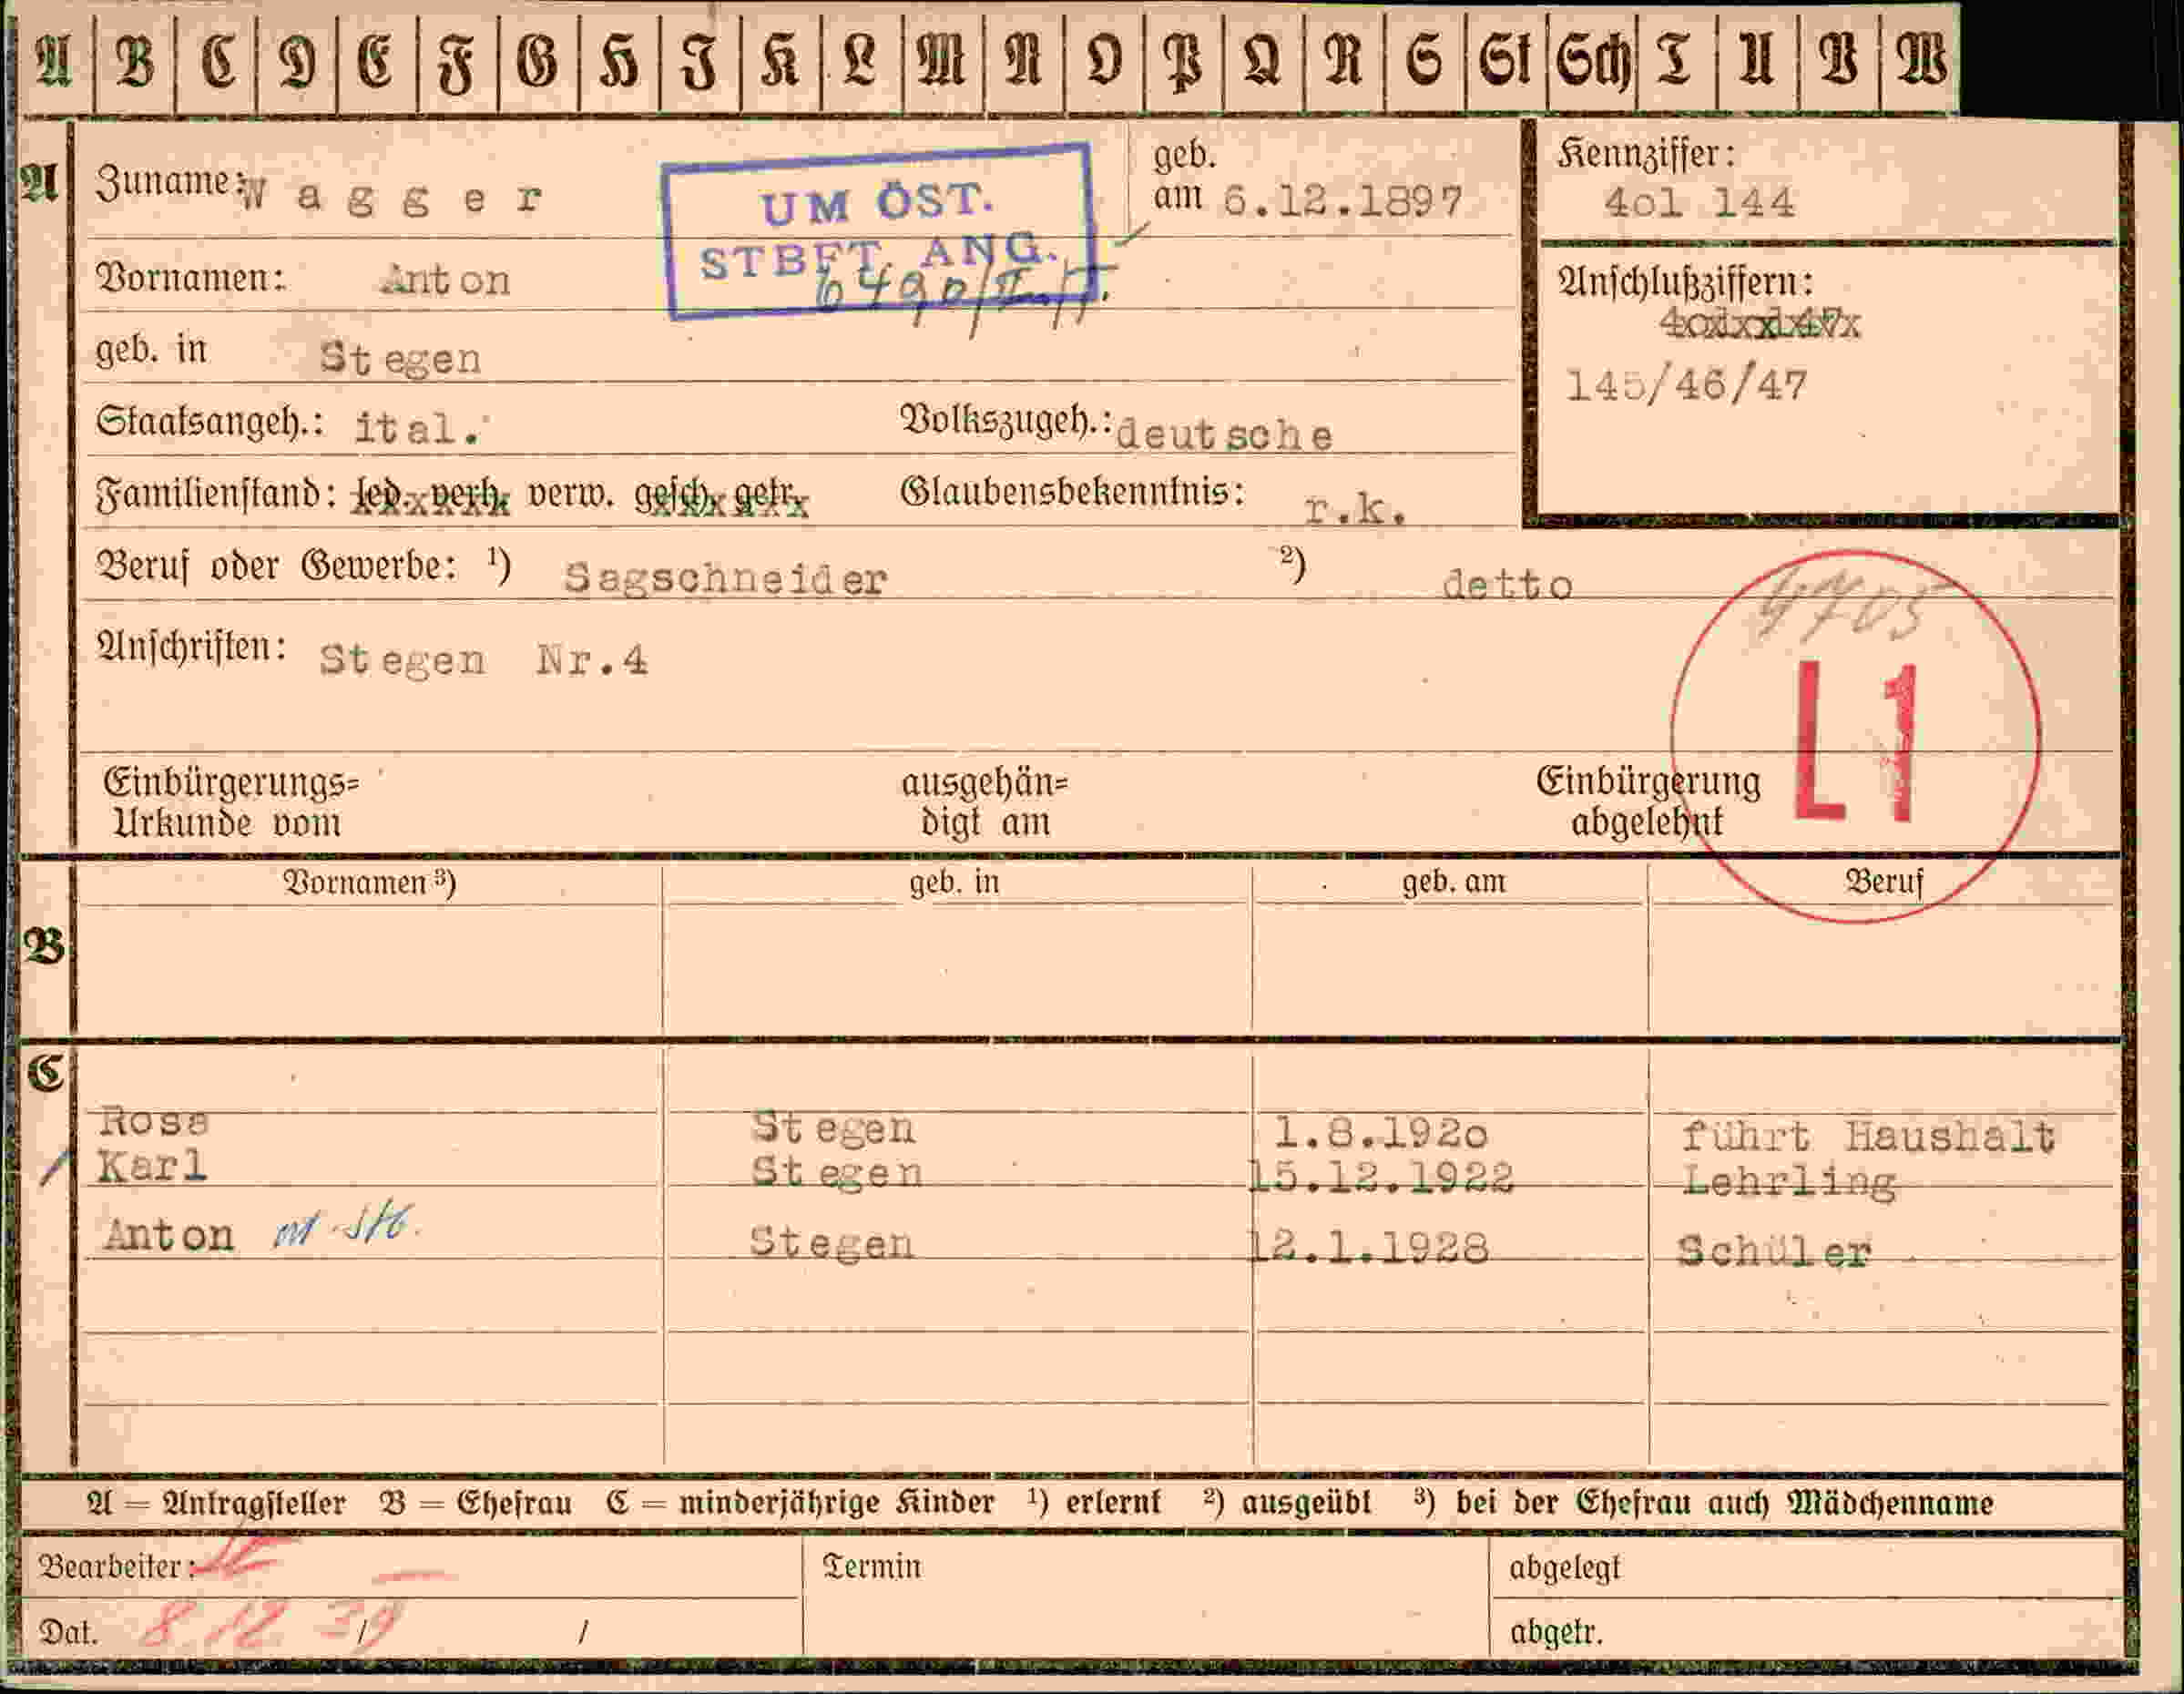 A B C D E F G H I K L M N O P Q R S St Sch T U V W
A
Zuname: W a g g e r
UM ÖST.
STBFT. ANG.
geb.
am 6.12.1897
Kennziffer:
4o1 144
Vornamen: Anton
Anschlußziffern:
145/46/47
geb. in Stegen
Staatsangeh.: ital. Volkszugeh.: deutsche
Familienstand: led. verh. verw. gesch. getr. Glaubensbekenntnis: r.k.
Beruf oder Gewerbe: ¹) Sagschneider ²) detto
4705
Anschriften: Stegen Nr.4
L1
Einbürgerungs=
Urkunde vom
ausgehän=
digt am
Einbürgerung
abgelehnt
B
Vornamen ³) geb. in geb. am Beruf
C
Rosa Stegen 1.8.192o führt Haushalt
Karl Stegen 15.12.1922 Lehrling
Anton Stegen 12.1.1928 Schüler
A = Antragsteller B = Ehefrau C = minderjährige Kinder ¹) erlernt ²) ausgeübt ³) bei der Ehefrau auch Mädchenname
Bearbeiter: Termin abgelegt
Dat. 8 12 39 / / abgetr.